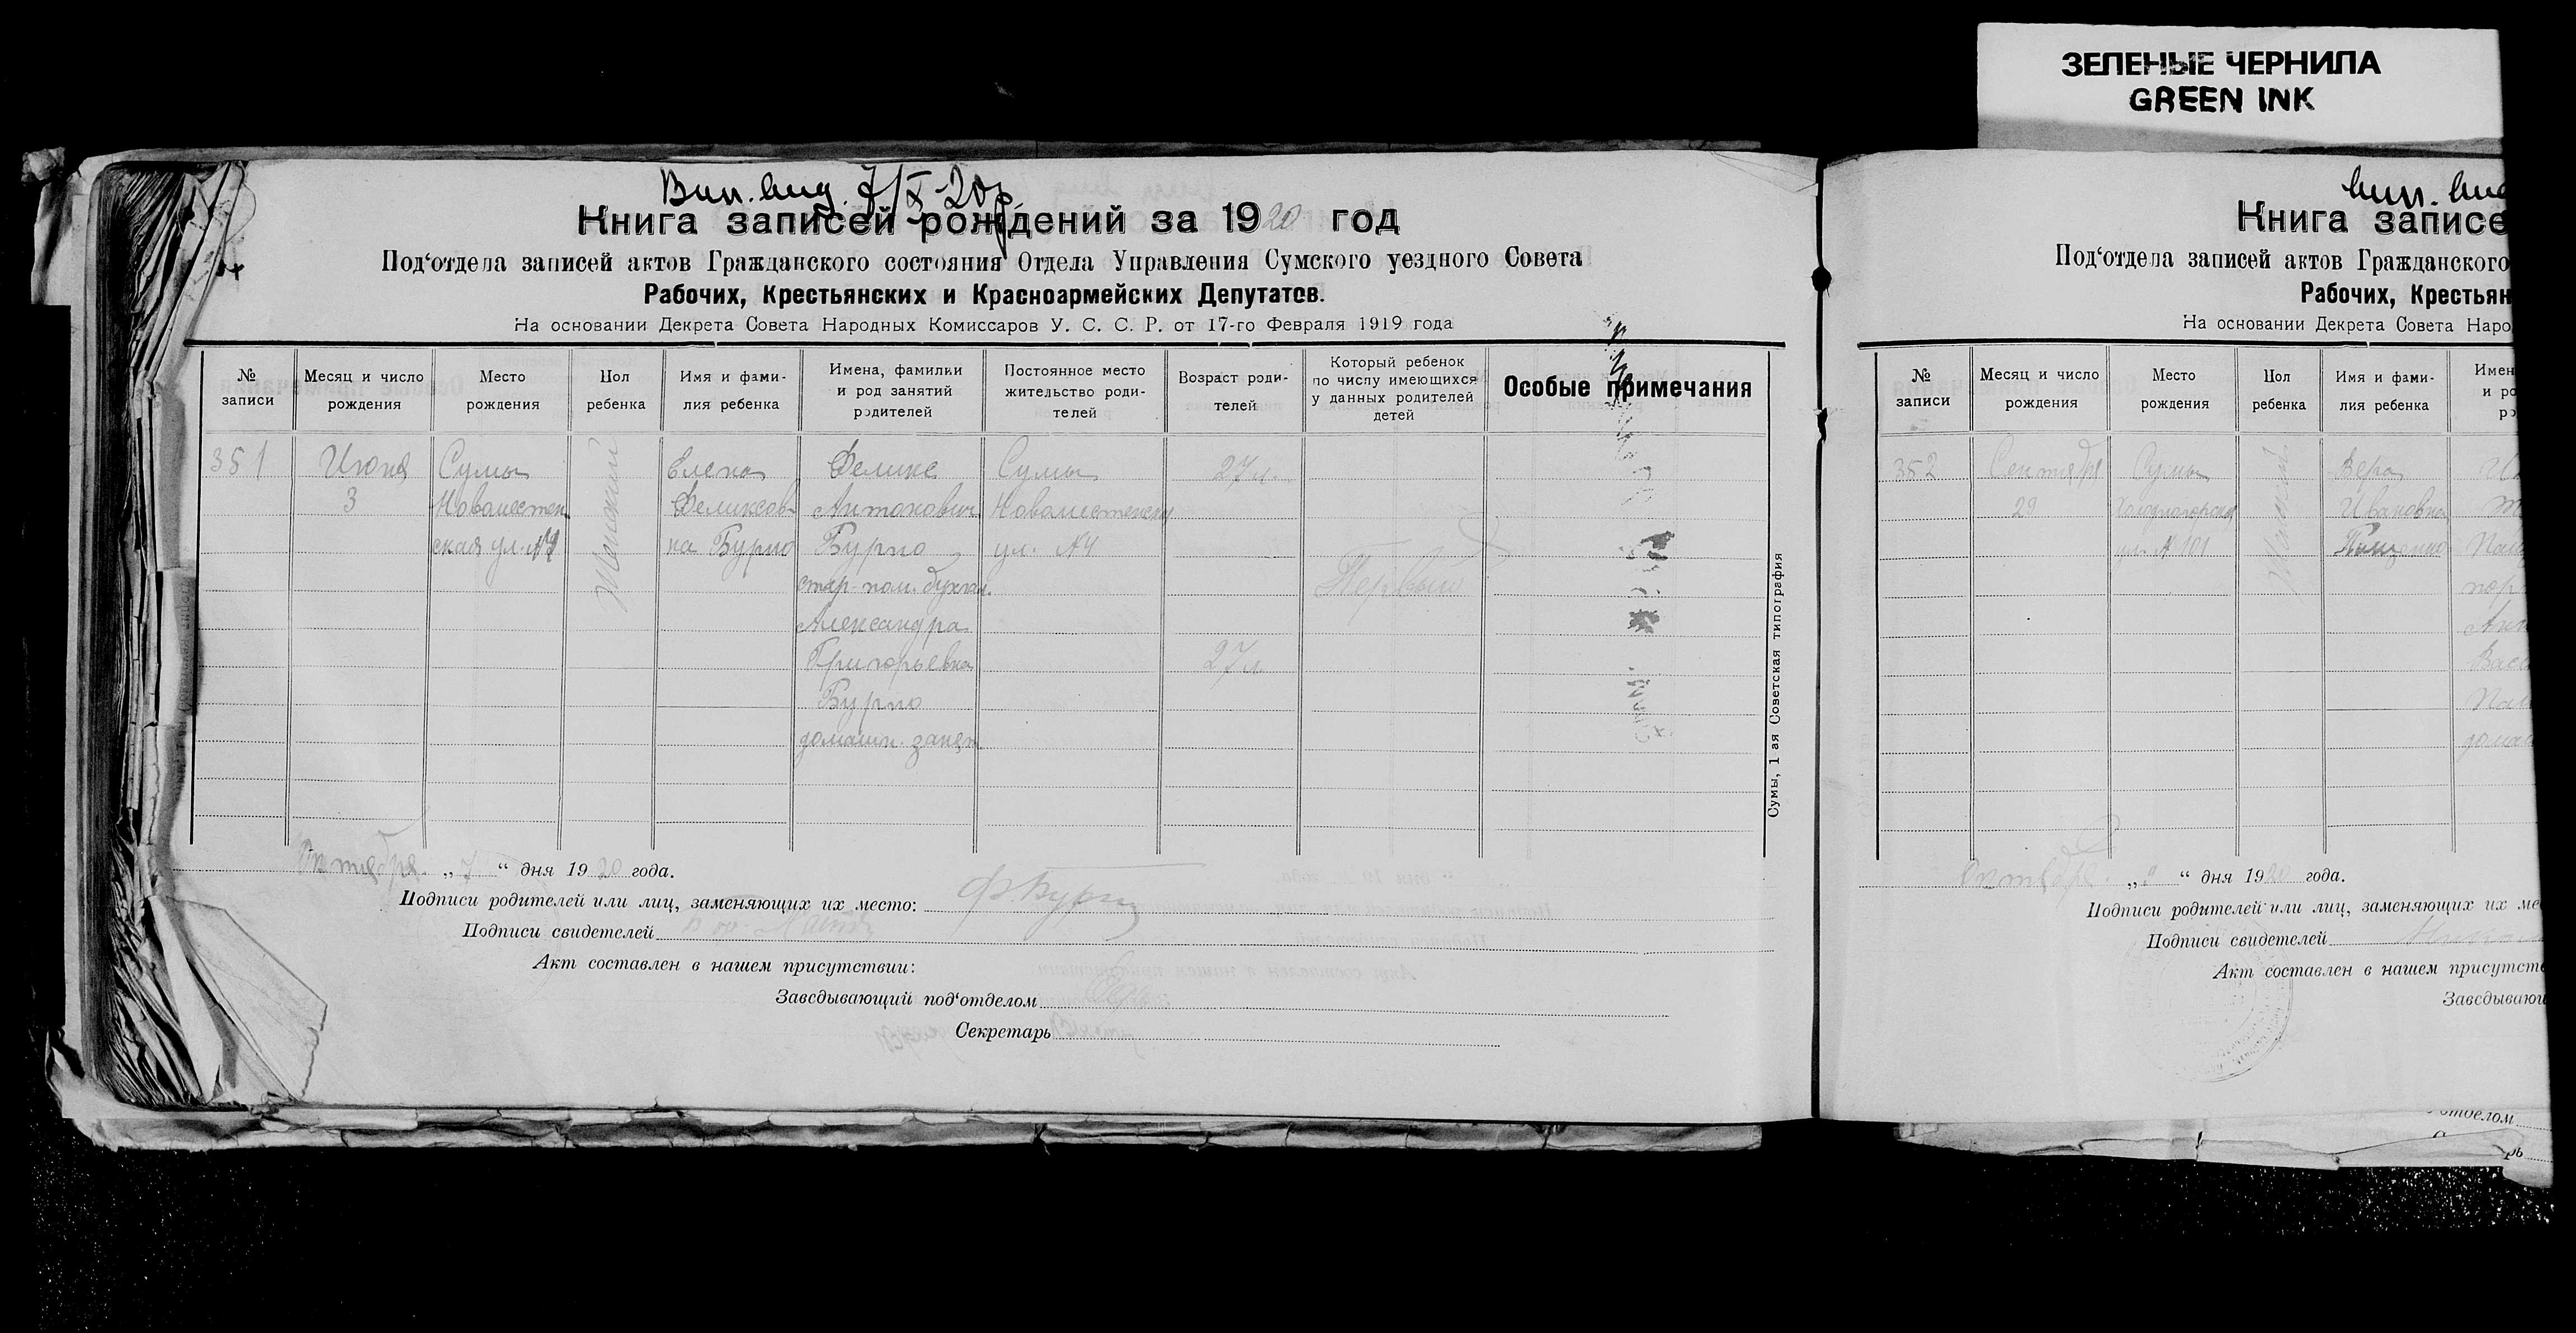 ЗЕЛЕНЫЕ ЧЕРНИЛА
GREEN INK
Вип. вид. 7/X-20р.
Книга записей рождений за 1920 год
Под‘отдела записей актов Гражданского состояния Отдела Управления Сумского уездного Совета
Рабочих, Крестьянских и Красноармейских Депутатов.
На основании Декрета Совета Народных Комиссаров У. С. С. Р. от 17-го Февраля 1919 года
№ записи
Месяц и число рождения
Место рождения
Пол ребенка
Имя и фами-
лия ребенка
Имена, фамилии
и род занятий
родителей
Постоянное место
жительство роди-
телей
Возраст роди-
телей
Который ребенок
по числу имеющихся
у данных родителей
детей
Особые примечания
351
Июня
3
Сумы
Новоместен
ская ул. №4
Женский
Елена
Феликсов-
на Бурно
Феликс
Антонович
Бурно
стар. пом. бухгал.
Александра
Григорьевна
Бурно
домашн. занят.
Сумы
Новоместенская
ул. №4
27 л.
27 л.
Первый
Сумы, 1 ая Советская типография
Октября „ 7 “ дня 1920 года.
Подписи родителей или лиц, заменяющих их место: Ф. Бурно
Подписи свидетелей
Акт составлен в нашем присутствии:
Заведывающий под‘отделом
Секретарь
вип. вид
Книга записе
Под‘отдела записей актов Гражданского
Рабочих, Крестьян
На основании Декрета Совета Наро
№ записи
Месяц и число рождения
Место рождения
Пол ребенка
Имя и фами-
лия ребенка
Имен
и ро
р
352
Сентября
29
Сумы
Холодногорская
ул. № 101
Женский
Вера
Ивановна
Октября „ “ дня 1920 года.
Подписи родителей или лиц, заменяющих их мес
Подписи свидетелей
Акт составлен в нашем присутств
Заведывающ
отделом
рь